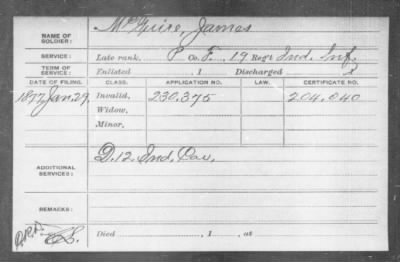 NAME OF SOLDIER: McGuire, James
SERVICE: Late rank, P Co. F, 19 Reg't Ind. Inf.
TERM OF SERVICE: Enlisted , 1 Discharged , 1
DATE OF FILING. CLASS. APPLICATION NO. LAW. CERTIFICATE NO.
1877, Jan. 29, Invalid, 230,375 204,040
Widow,
Minor,
ADDITIONAL SERVICES: D. 12. Ind. Cav.
REMARKS:
Died , 1 , at